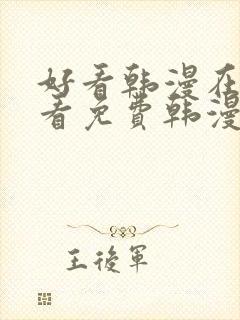 好看韩漫在
看免费韩漫
王後軍